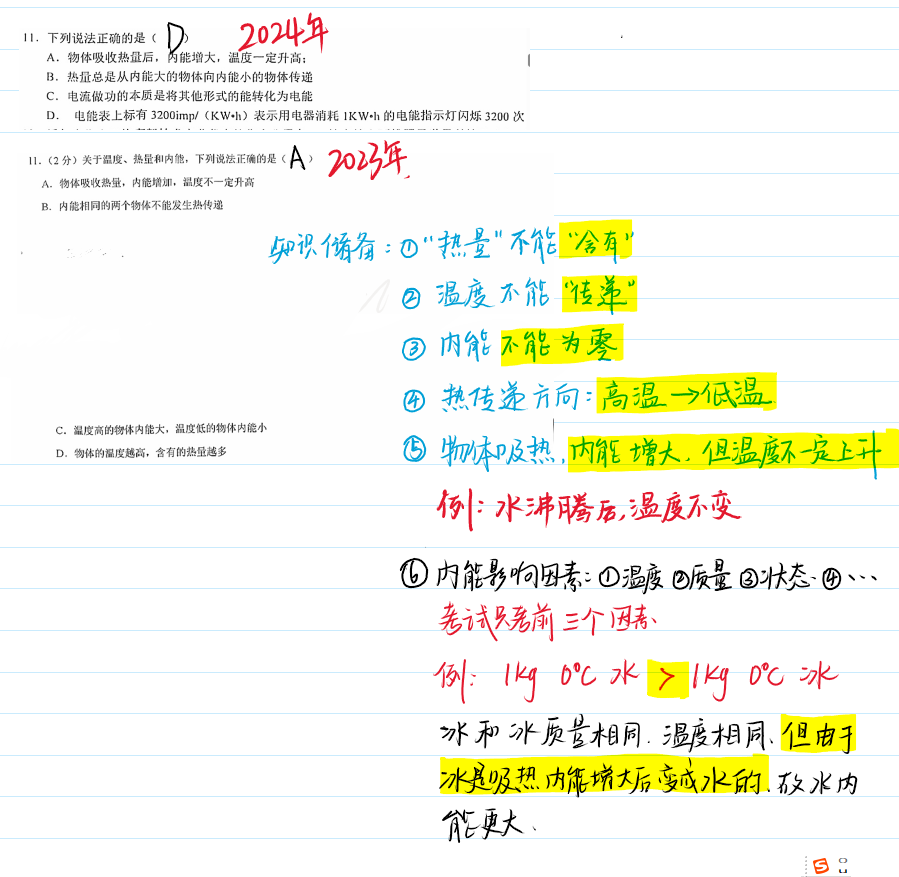 11．下列说法正确的是（ D ） 2024年
A．物体吸收热量后，内能增大，温度一定升高；
B．热量总是从内能大的物体向内能小的物体传递
C．电流做功的本质是将其他形式的能转化为电能
D． 电能表上标有 3200imp/（KW•h）表示用电器消耗 1KW•h 的电能指示灯闪烁 3200 次
11．（2 分）关于温度、热量和内能，下列说法正确的是（ A ） 2023年
A．物体吸收热量，内能增加，温度不一定升高
B．内能相同的两个物体不能发生热传递
知识储备：①“热量”不能“含有”
② 温度不能“传递”
③ 内能不能为零
④ 热传递方向：高温→低温
C．温度高的物体内能大，温度低的物体内能小
D．物体的温度越高，含有的热量越多
⑤ 物体吸热，内能增大．但温度不一定上升
例：水沸腾后，温度不变
⑥内能影响因素：①温度 ②质量 ③状态 ④、…
考试只考前三个因素、
例： 1kg 0℃ 水 > 1kg 0℃ 冰
冰和冰质量相同．温度相同、但由于
冰是吸热内能增大后变成水的、故水内
能更大、